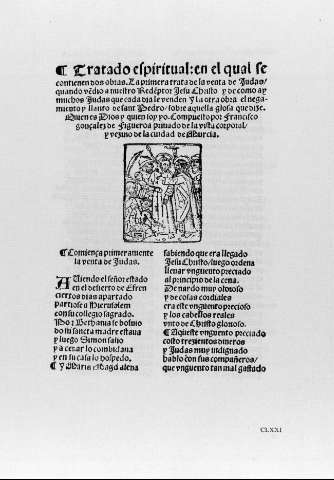 ¶ Tratado espiritual: en el qual se
contienen dos obras. La primera trata de la venta de Judas/
quando vẽdio a nuestro Redẽptor Jesu Christo y de como ay
muchos Judas que cada dia le venden Y la otra obra el nega-
miento y llanto de sant Pedro/ sobre aquella glosa que dize.
Quien es Dios y quien soy yo. Compuesto por Francisco
gonçalez de Figueroa priuado de la vista corporal/
y vezino de la ciudad de Murcia.
¶ Comiença primeramente
la venta de Judas.
Auiendo el señor estado
en el desierto de Efren
ciertos dias apartado
partiose a Hierusalem
con su collegio sagrado.
Por Bethania se boluio
do su sancta madre estaua
y luego Simon salio
y a cenar lo combidaua
y en su casa lo hospedo.
¶ Y Maria Magdalena
sabiendo que era llegado
Jesu Christo/ luego ordena
llenar vnguento preciado
al principio de la cena.
De nardo muy oloroso
y de cosas cordiales
era este vnguento precioso
y los cabellos reales
vnto de Christo glorioso.
¶ Aqueste vnguento preciado
costo trezientos dineros
y Judas muy indignado
hablo con sus compañeros/
que vnguento tan mal gastado
CLXXI